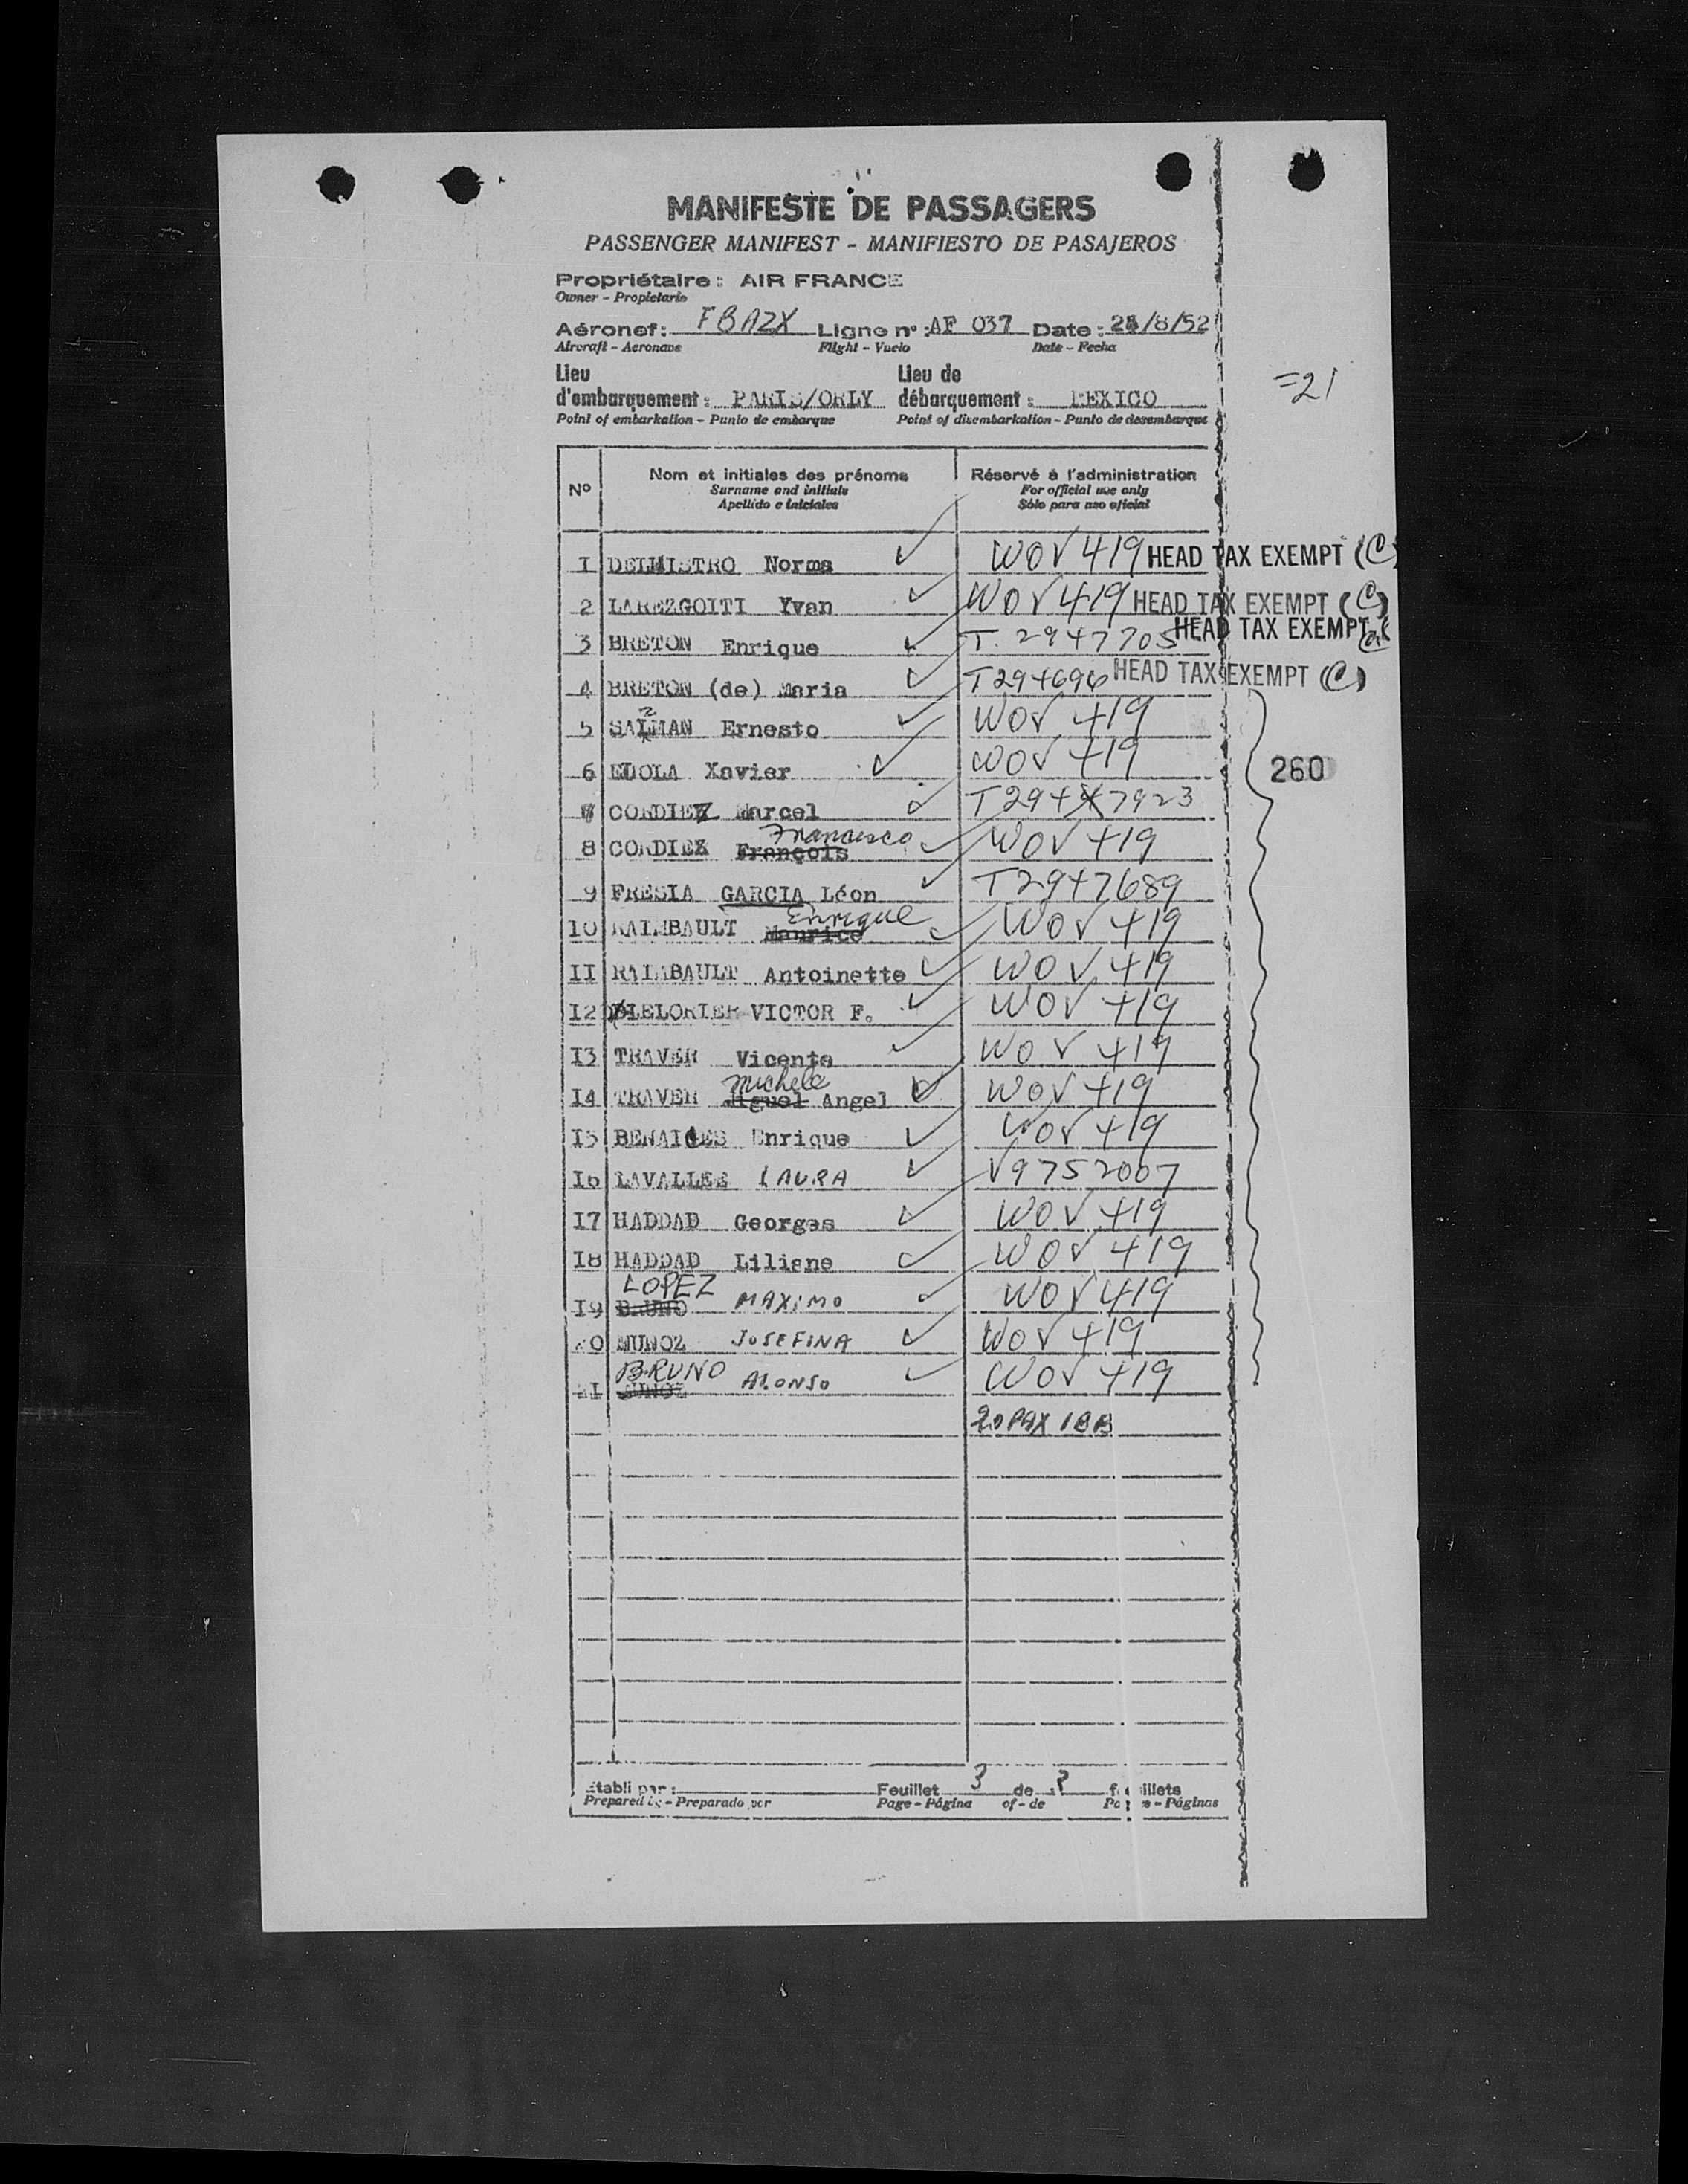 MANIFESTE DE PASSAGERS
PASSENGER MANIFEST - MANIFIESTO DE PASAJEROS
Propriétaire : AIR FRANCE
Owner - Propietario
Aéronef : FBAZX Ligne n° : AF 037 Date : /8/52
Aircraft - Aeronave Flight - Vuelo Date - Fecha
Lieu Lieu de
d'embarquement : PARIS/ORLY débarquement : MEXICO
=21
Point of embarkation - Punto de embarque Point of disembarkation - Punto de desembarque
N° Nom et initiales des prénoms Réservé à l'administration
Surname and initials For official use only
Apellido e iniciales Sólo para uso oficial
I DELMISTRO Norma ✓ WOV 419 HEAD TAX EXEMPT (C)
2 LAREZGOITI Yvan ✓ WOV 419 HEAD TAX EXEMPT (C)
3 BRETON Enrique ✓ T. 2947705 HEAD TAX EXEMPT
4 BRETON (de) Maria ✓ T294696 HEAD TAX EXEMPT (C)
5 SAZMAN Ernesto ✓ WOV 419
6 EDOLA Xavier ✓ WOV 419
260
7 CORDIEZ Marcel ✓ T2947923
Francisco
8 CORDIEZ François ✓ WOV 419
9 FRESIA GARCIA Léon ✓ T2947689
Enrique
10 RAIMBAULT Maurice ✓ WOV 419
II RAIMBAULT Antoinette ✓ WOV 419
I2 LELORIER VICTOR F. ✓ WOV 419
I3 TRAVER Vicente ✓ WOV 419
Michele
I4 TRAVER Miguel Angel ✓ WOV 419
I5 Enrique ✓ WOV 419
I6 LAVALLEE LAURA ✓ V9752007
I7 HADDAD Georges ✓ WOV 419
I8 HADDAD Liliane ✓ WOV 419
LOPEZ
I9 BRUNO MAXIMO ✓ WOV 419
20 MUNOZ JOSEFINA ✓ WOV 419
BRUNO
21 MUNOZ ALONSO ✓ WOV 419
20 PAX 1BB
Etabli par : Feuillet 3 de 3 feuillets
Prepared by - Preparado por Page - Página of - de Pages - Páginas